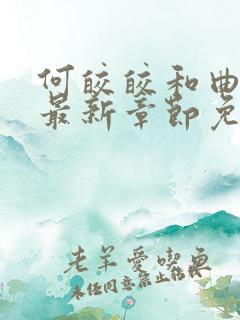 何皎皎和曲
最新章節免
老羊愛喫魚
未经同意禁止转载